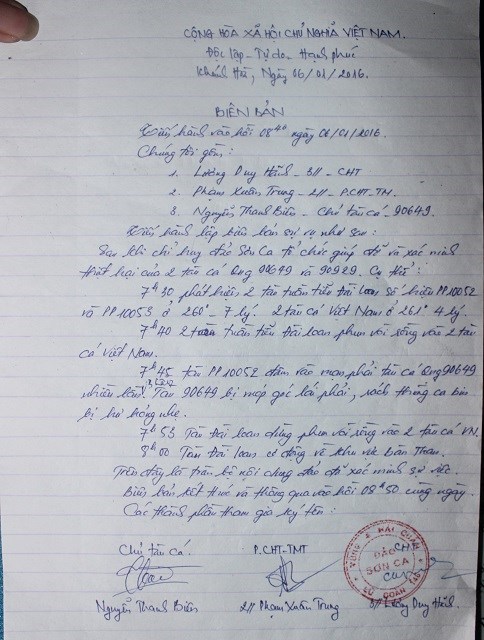 CỘNG HÒA XÃ HỘI CHỦ NGHĨA VIỆT NAM.
Độc lập - Tự do - Hạnh phúc
Khánh Hòa, Ngày 06/01/2016.
BIÊN BẢN
Tiến hành vào hồi 08h40 ngày 06/01/2016.
Chúng tôi gồm:
1. Lương Duy Hãnh - 3// - CHT
2. Phạm Xuân Trung - 2// - P.CHT-TM.
3. Nguyễn Thanh Biên - Chủ tàu cá - 90649.
Tiến hành lập biên bản sự vụ như sau:
Sau khi chỉ huy đảo Sơn Ca tổ chức giúp đỡ và xác minh
thiệt hại của 2 tàu cá Qng 90649 và 90929. Cụ thể:
7h30, phát hiện 2 tàu tuần tiễu Đài loan số hiệu PP10052
và PP10053 ở 260° - 7 lý. 2 tàu cá Việt Nam ở 261° 4 lý.
7h40 2 tàu tuần tiễu Đài loan phun vòi rồng vào 2 tàu
cá Việt Nam.
7h45 tàu PP10052 đâm vào mạn phải tàu cá Qng 90649
nhiều lần. Tàu 90649 bị móp góc lái phải, rách thùng ca bin
bị hư hỏng nhẹ.
7h53 Tàu Đài loan dừng phun vòi rồng vào 2 tàu cá VN.
8h00 Tàu Đài loan cơ động về khu vực bàn Than.
Trên đây là toàn bộ nội dung đảo đã xác minh sự việc.
Biên bản kết thúc và thông qua vào hồi 08h50 cùng ngày.
Các thành phần tham gia ký tên:
Chủ tàu cá. P.CHT-TMT CHT
VÙNG 4 HẢI QUÂN
ĐẢO
SƠN CA
Nguyễn Thanh Biên 2// Phạm Xuân Trung 3// Lương Duy Hãnh